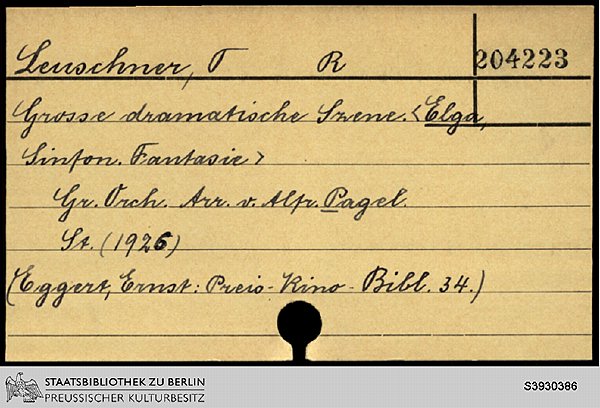 Leuschner, T R 204223
Grosse dramatische Szene. <Elga,
Sinfon. Fantasie>
Gr. Orch. Arr. v. Alfr. Pagel.
St. (1926)
(Eggert, Ernst: Preis-Kino-Bibl. 34.)
STAATSBIBLIOTHEK ZU BERLIN
PREUSSISCHER KULTURBESITZ
S3930386